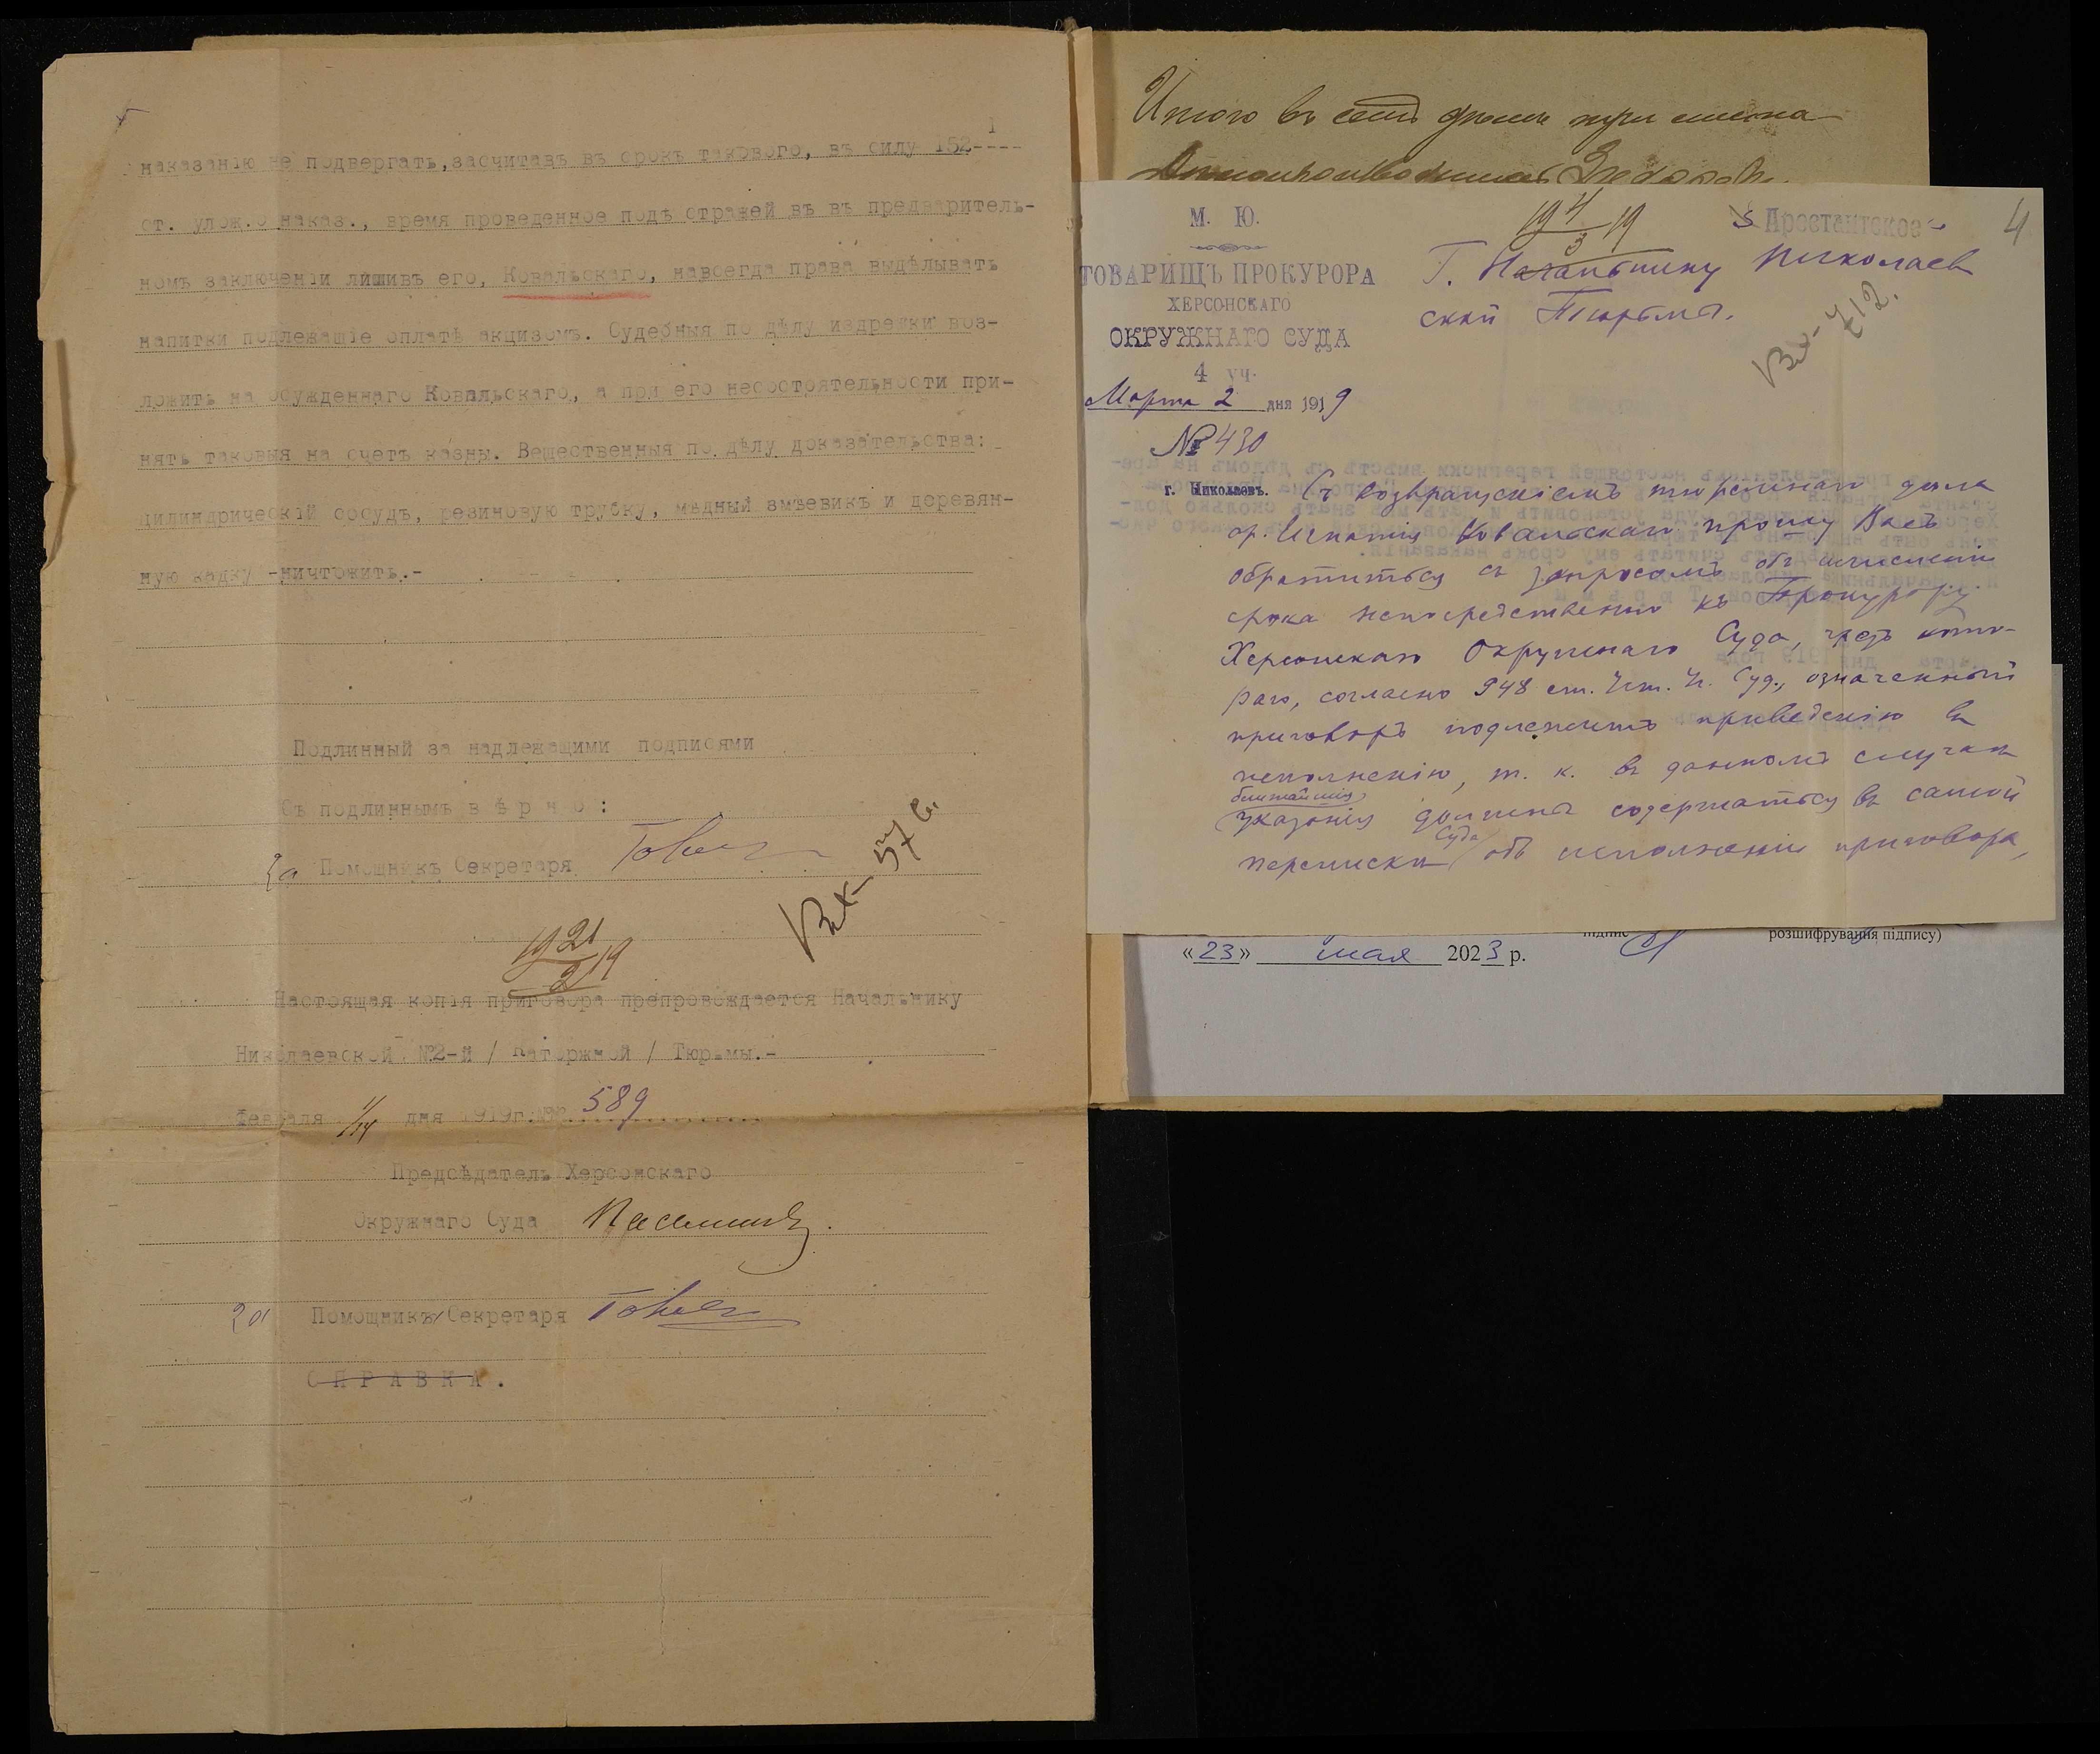 наказанію не подвергать, засчитавъ въ срокъ такового, въ силу 152
1
ст. улож. о наказ., время проведенное подъ стражей въ въ предваритель-
номъ заключеніи лишивъ его, Ковальскаго, навсегда права выдѣлывать
напитки подлежащіе оплатѣ акцизомъ. Судебныя по дѣлу издержки воз-
ложить на осужденнаго Ковальскаго, а при его несостоятельности при-
нять таковыя на счетъ казны. Вещественныя по дѣлу доказательства:
цилиндрическій сосудъ, резиновую трубку, мѣдный змѣевикъ и деревян-
ную кадку -ничтожить.-
Подлинный за надлежащими подписями
Съ подлиннымъ в ѣ р н о :
За Помощникъ Секретаря
Вх-
19 21/2 19
Настоящая копія приговора препровождается Начальнику
Николаевской №2-й / Каторжной / Тюрьмы.-
Февраля 1/14 дня 1919г. № 589
Предсѣдатель Херсонскаго
Окружнаго Суда
За Помощникъ Секретаря
С П Р А В К А .
Итого въ семъ дѣлѣ три листа
М. Ю.
ТОВАРИЩЪ ПРОКУРОРА
ХЕРСОНСКАГО
ОКРУЖНАГО СУДА
4 уч.
Марта 2 дня 1919
№ 430
г. Николаевъ.
19 4/3 19
Арестантское
4
Г. Начальнику Николаев
ской Тюрьмы.
Вх- 712.
Съ возвращеніемъ тюремнаго дѣла
ар. Игнатія Ковальскаго прошу Васъ
обратиться съ запросомъ объ исчисленіи
срока непосредственно къ Прокурору
Херсонскаго Окружнаго Суда, чрезъ кото-
раго, согласно 948 ст. Уст. У. Суд., означенный
приговоръ подлежитъ приведенію въ
исполненію, т. к. въ данномъ случаѣ
ближайшія
указанія должны содержаться въ самой
Суда
переписки объ исполненіи приговора,
підпис
розшифрування підпису)
«23» мая 2023 р.